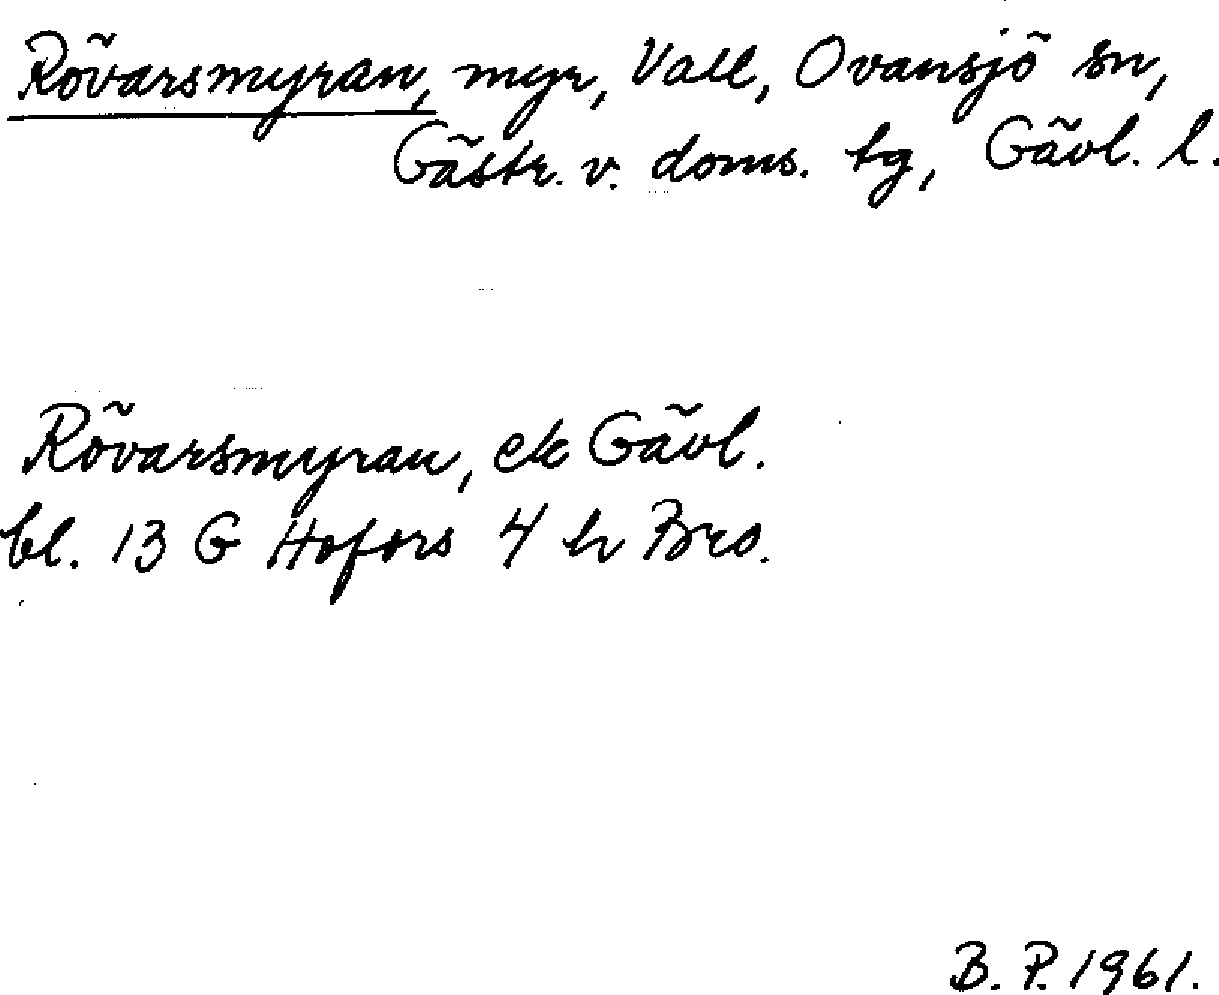 Rövarsmyran, myr, Vall, Ovansjö sn,
Gästr. v. doms. tg, Gävl. l.
Rövarsmyran, ek Gävl.
bl. 13 G Hofors 4 h Bro.
B. P. 1961.